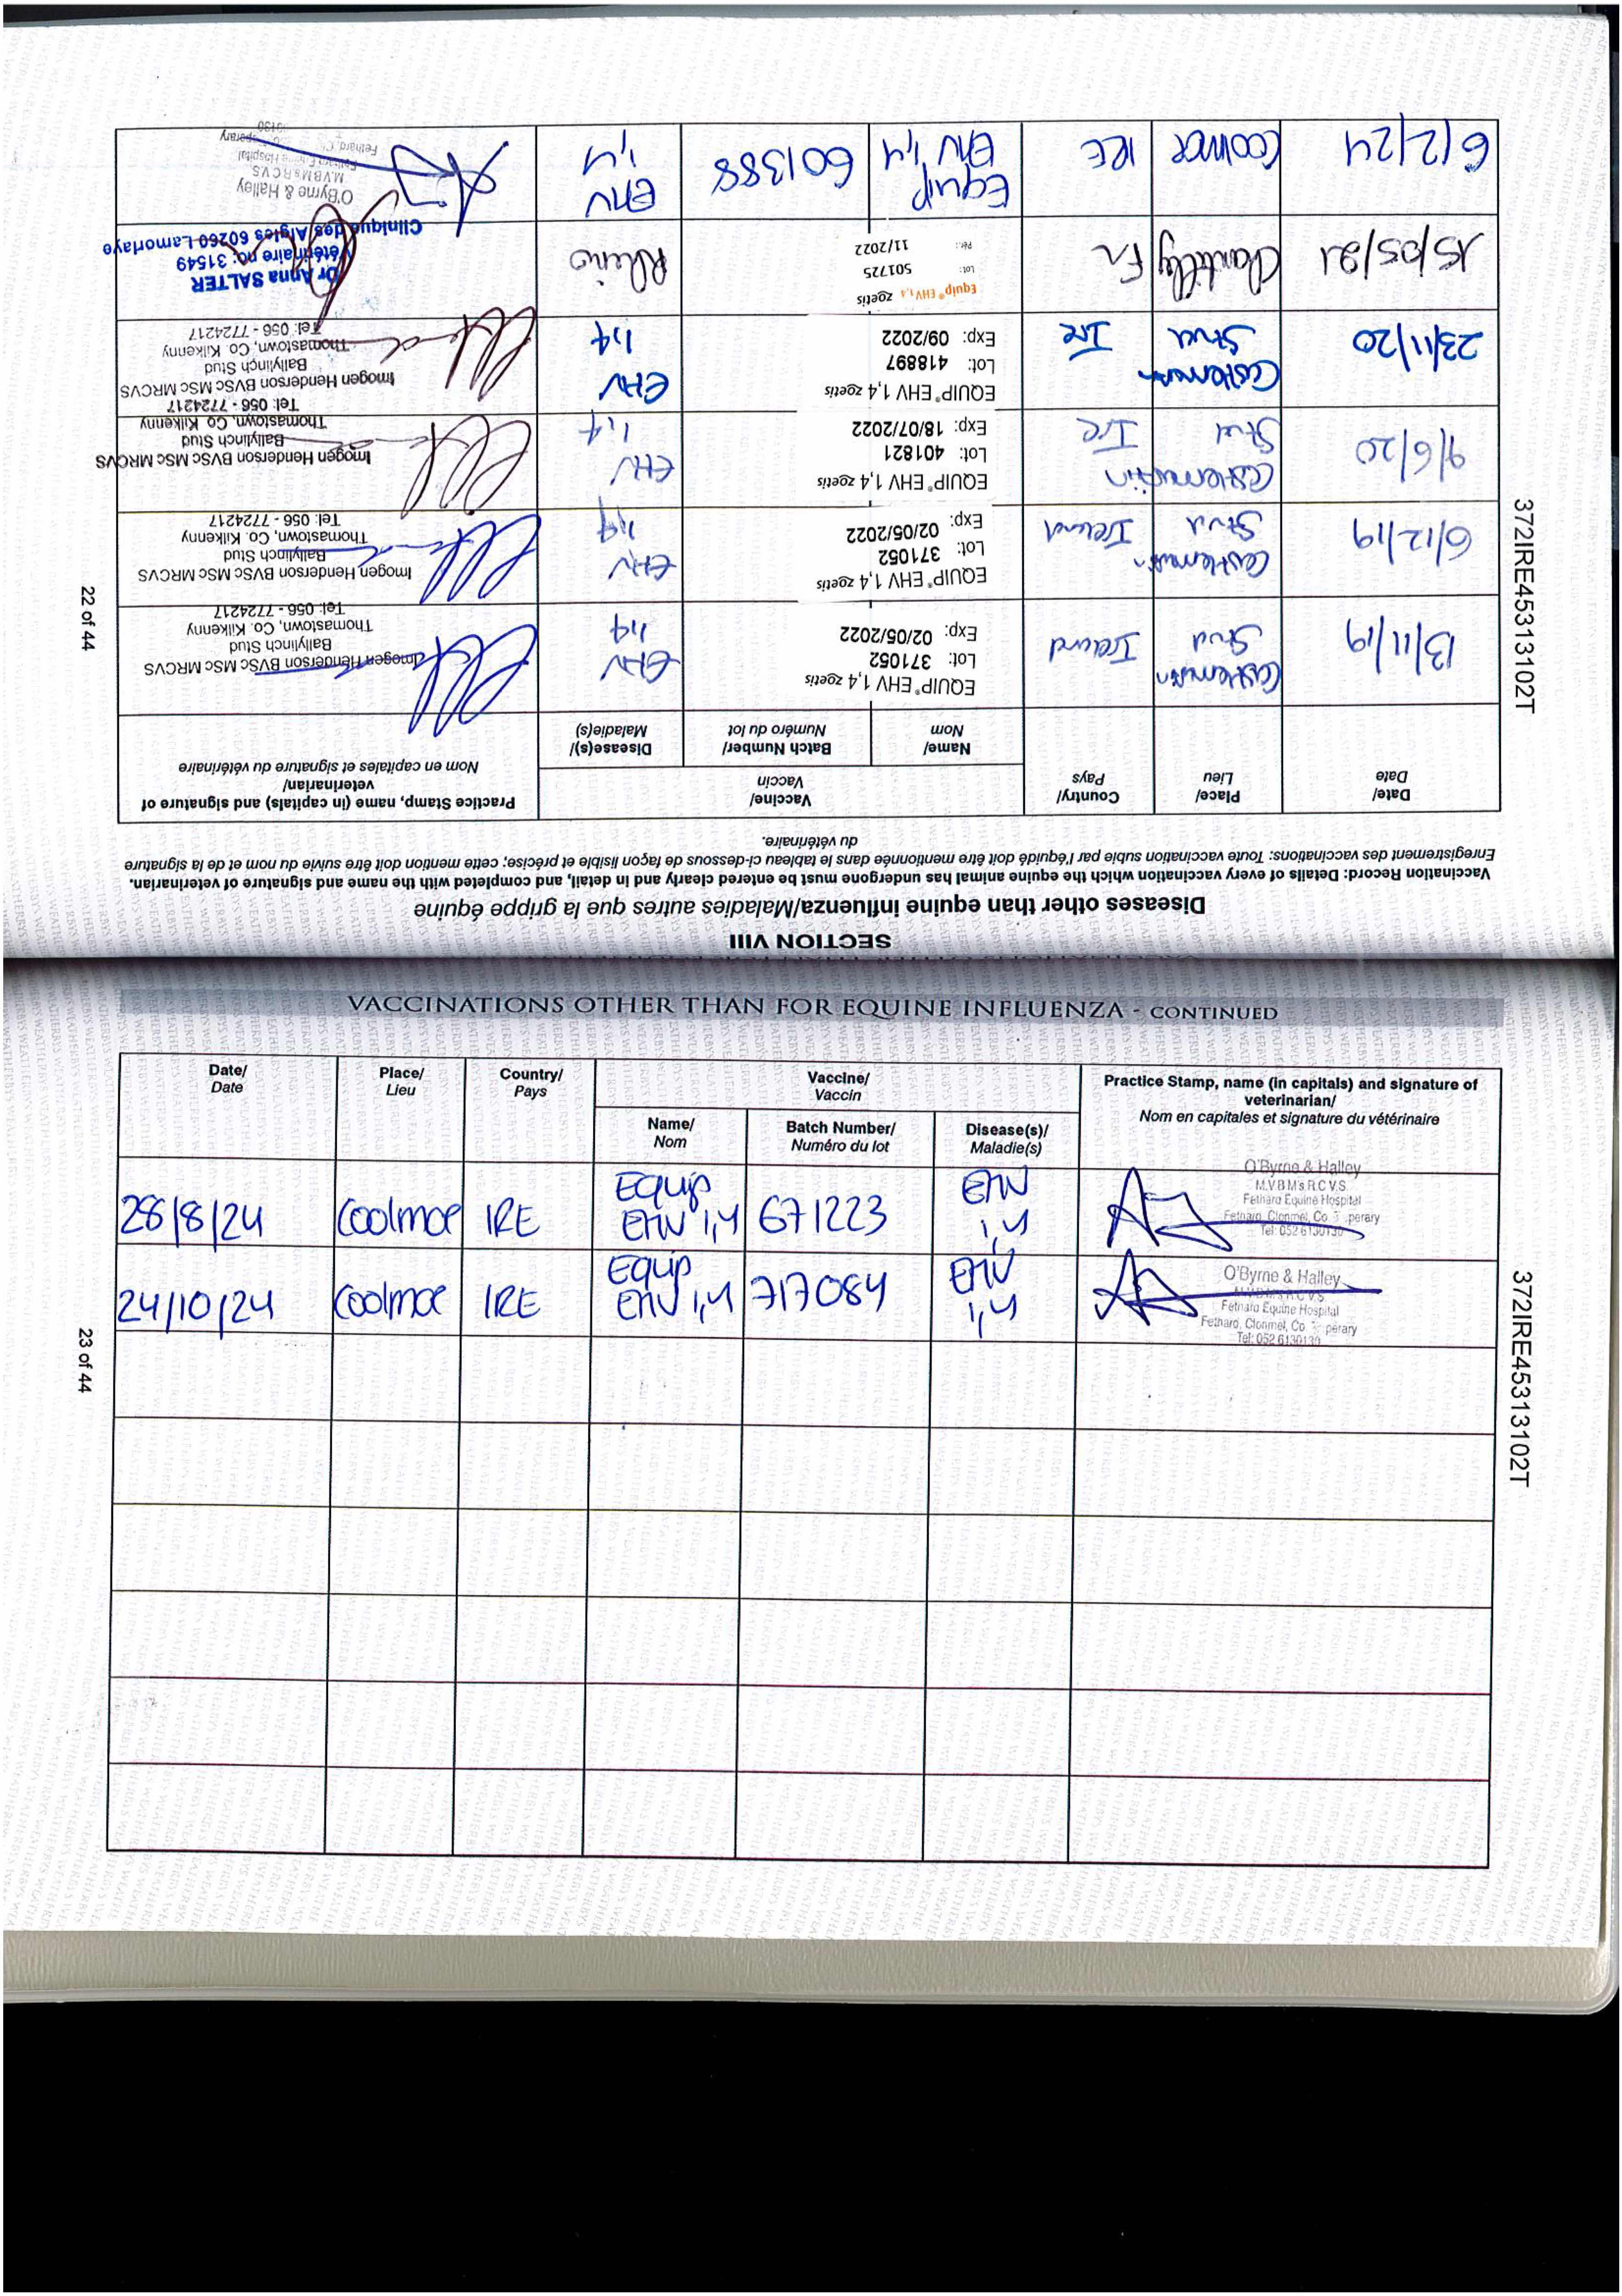 SECTION VIII
Diseases other than equine influenza/Maladies autres que la grippe équine
Vaccination Record: Details of every vaccination which the equine animal has undergone must be entered clearly and in detail, and completed with the name and signature of veterinarian.
Enregistrement des vaccinations: Toute vaccination subie par l'équidé doit être mentionnée dans le tableau ci-dessous de façon lisible et précise; cette mention doit être suivie du nom et de la signature
du vétérinaire.
Date/
Date
Place/
Lieu
Country/
Pays
Vaccine/
Vaccin
Name/
Nom
Batch Number/
Numéro du lot
Disease(s)/
Maladie(s)
Practice Stamp, name (in capitals) and signature of
veterinarian/
Nom en capitales et signature du vétérinaire
13/11/19
Castlemartin
Stud
Ireland
EQUIP® EHV 1,4 zoetis
Lot: 371052
Exp: 02/05/2022
EHV
1,4
Imogen Henderson BVSc MSc MRCVS
Ballylinch Stud
Thomastown, Co. Kilkenny
Tel: 056 - 7724217
6/12/19
Castlemartin
Stud
Ireland
EQUIP® EHV 1,4 zoetis
Lot: 371052
Exp: 02/05/2022
EHV
1,4
Imogen Henderson BVSc MSc MRCVS
Ballylinch Stud
Thomastown, Co. Kilkenny
Tel: 056 - 7724217
9/6/20
Castlemartin
Stud
Ire
EQUIP® EHV 1,4 zoetis
Lot: 401821
Exp: 18/07/2022
EHV
1,4
Imogen Henderson BVSc MSc MRCVS
Ballylinch Stud
Thomastown, Co. Kilkenny
Tel: 056 - 7724217
23/11/20
Castlemartin
Stud
Ire
EQUIP® EHV 1,4 zoetis
Lot: 418897
Exp: 09/2022
EHV
1,4
Imogen Henderson BVSc MSc MRCVS
Ballylinch Stud
Thomastown, Co. Kilkenny
Tel: 056 - 7724217
15/05/21
Chantilly
Fr
Equip® EHV 1,4 zoetis
Lot: 501725
Pér.: 11/2022
Rhino
Dr Anna SALTER
Vétérinaire no: 31549
Clinique des Aigles 60260 Lamorlaye
6/2/24
Coolmore
IRE
Equip
EHV 1,4
601388
EHV
1,4
O'Byrne & Halley
M.V.B M's R C V S
Equine Hospital
Fethard, C
22 of 44
372IRE45313102T
VACCINATIONS OTHER THAN FOR EQUINE INFLUENZA - CONTINUED
Date/
Date
Place/
Lieu
Country/
Pays
Vaccine/
Vaccin
Name/
Nom
Batch Number/
Numéro du lot
Disease(s)/
Maladie(s)
Practice Stamp, name (in capitals) and signature of
veterinarian/
Nom en capitales et signature du vétérinaire
28/8/24
Coolmoe
IRE
Equip
EHV 1,4
671223
EHV
1,4
O'Byrne & Halley
M.V.B M's R.C.V.S.
Fethard Equine Hospital
Fethard, Clonmel, Co. perary
Tel: 052 6130130
24/10/24
Coolmoe
IRE
Equip
EHV 1,4
717084
EHV
1,4
O'Byrne & Halley
M.V.B M's R.C.V.S
Fethard Equine Hospital
Fethard, Clonmel, Co. perary
Tel: 052 6130130
23 of 44
372IRE45313102T